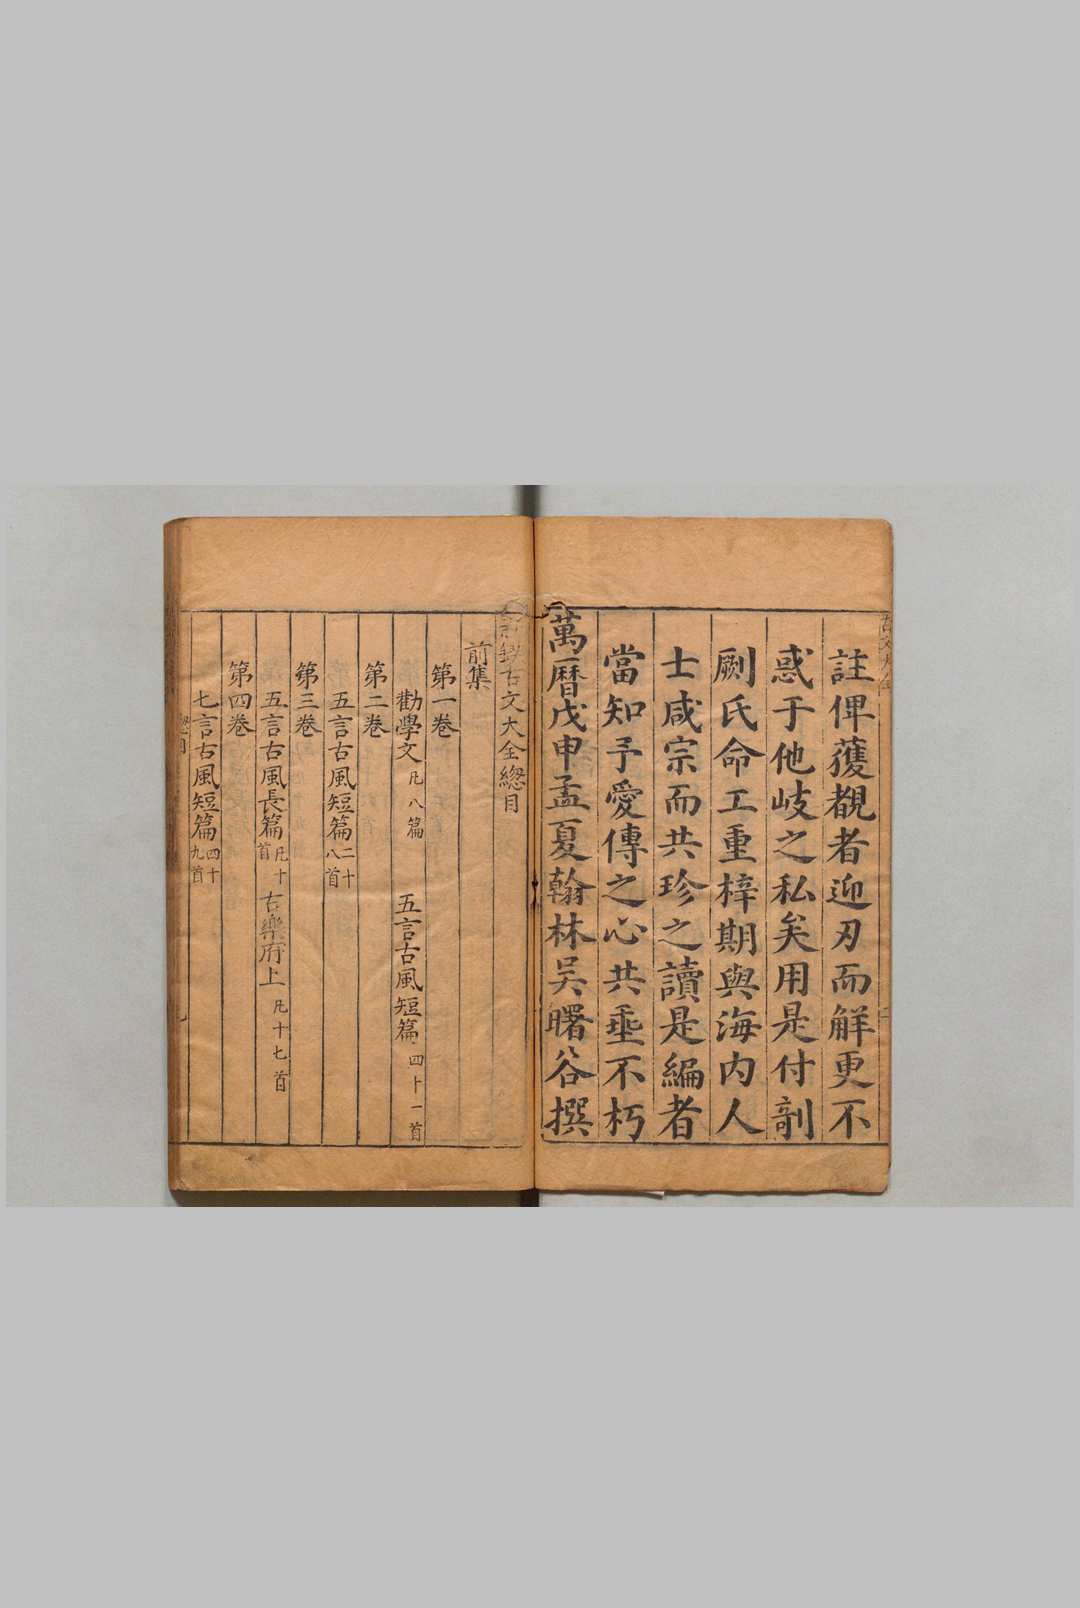 註俾獲覩者迎刃而解更不
惑于他岐之私矣用是付剞
劂氏命工重梓期與海內人
士咸宗而共珍之讀是編者
當知予愛傳之心共垂不朽
萬曆戊申孟夏翰林吳曙谷撰
古文大全總目
前集
第一卷
勸學文 凡八篇 五言古風短篇 四十一首
第二卷
五言古風短篇 二十八首
第三卷
五言古風長篇 凡十首 古樂府上 凡十七首
第四卷
七言古風短篇 四十九首
總目